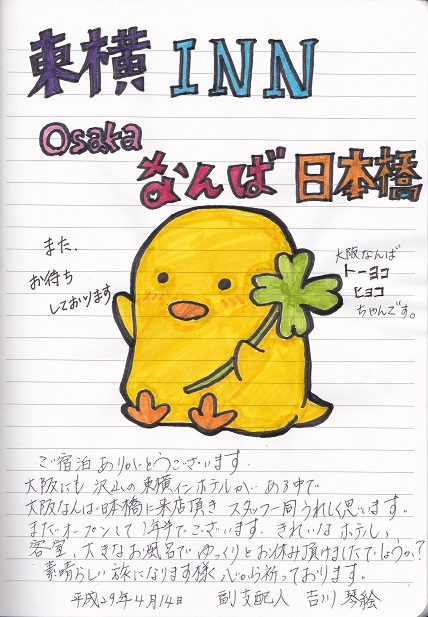 東横INN
Osaka
なんば 日本橋
また、
お待ち
しております
大阪なんば
トーヨコ
ヒヨコ
ちゃんです。
ご宿泊ありがとうございます。
大阪にも 沢山の東横インホテルが、ある中で
大阪なんば日本橋に来店頂き スタッフ一同うれしく思います。
まだオープンして1年半でございます。きれいなホテル、
客室、大きなお風呂でゆっくりとお休み頂けましたでしょうか?
素晴らしい旅になります様 心から祈っております。
平成29年4月14日 副支配人 吉川 琴絵